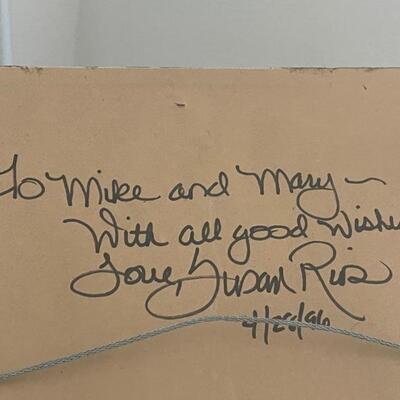 To Mike and Mary ~
With all good wishes
Love, Susan Rios
4/28/96